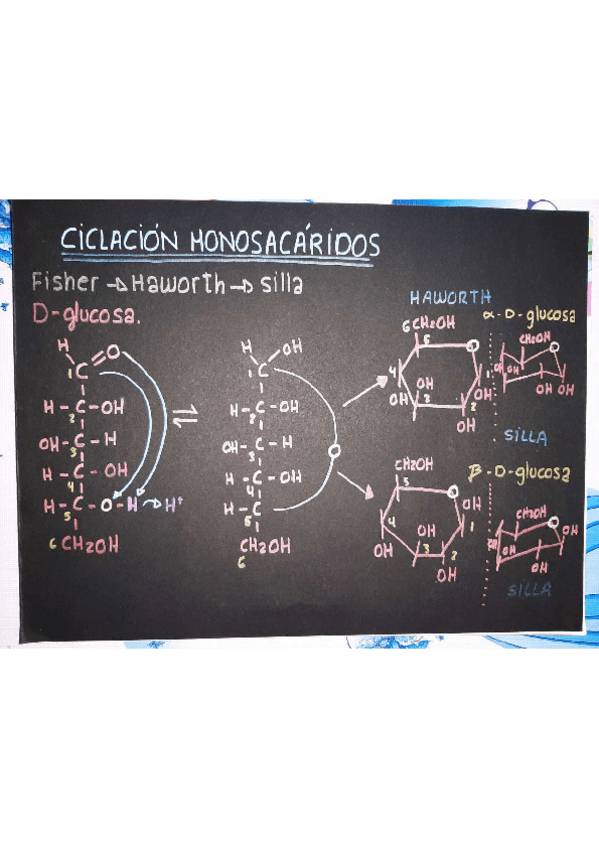 CICLACIÓN MONOSACÁRIDOS
Fisher → Haworth → silla
D-glucosa.
HAWORTH
α-D-glucosa
H O
1 C
H - C - OH
2
OH - C - H
3
H - C - OH
4
H - C - O - H → H⁺
5
6 CH2OH
⇌
H OH
C
H - C - OH
2
OH - C - H
3
H - C - OH
4
H - C
5
CH2OH
6
O
6 CH2OH
5
O
4
1
OH
OH
3
2
OH
OH
CH2OH
O
OH
OH
OH OH
SILLA
β-D-glucosa
CH2OH
5
O
OH
4
1
OH
OH
3
2
OH
CH2OH
O
OH
OH
OH
OH
SILLA